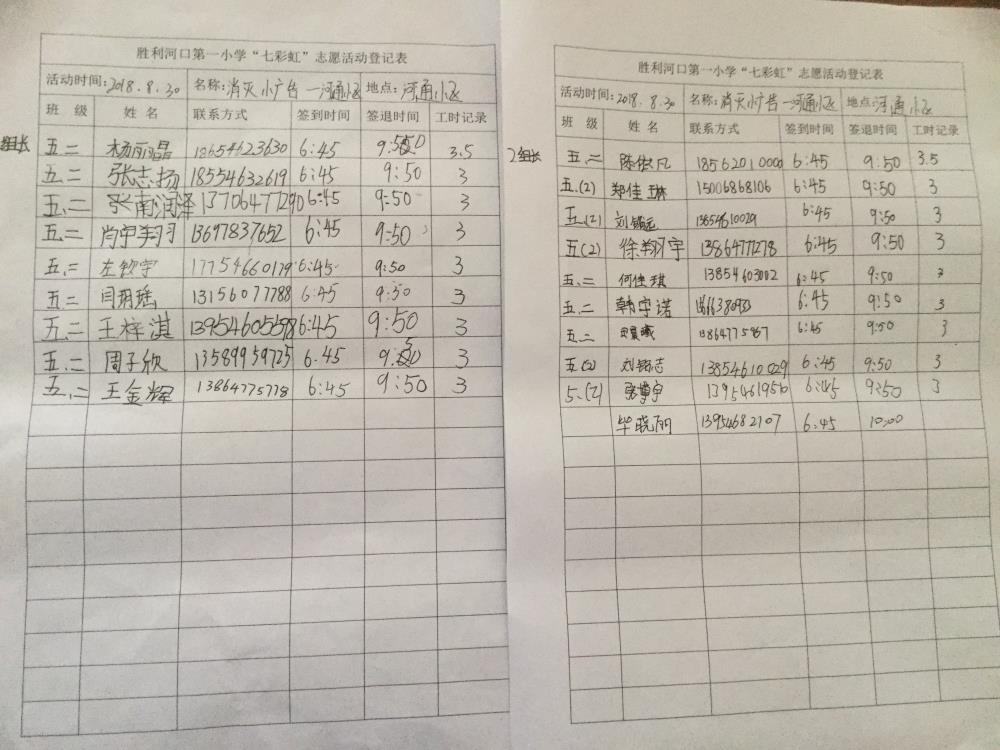 胜利河口第一小学“七彩虹”志愿活动登记表
活动时间:2018.8.30 名称:消灭小广告—河通小区 地点:河通小区
班 级 姓 名 联系方式 签到时间 签退时间 工时记录
组长 五.二 杨丽晶 18654623630 6:45 9:50 3.5
五.二 张志扬 18554632619 6:45 9:50 3
五.二 张南润泽 13706477290 6:45 9:50 3
五.二 肖宇翔 13697837652 6:45 9:50 3
五.二 左钦宇 17754660179 6:45 9:50 3
五二 闫玥瑶 13156077788 6:45 9:50 3
五.二 王梓淇 13954605598 6:45 9:50 3
五.二 周子欣 13589959725 6.45 9:50 3
五.二 王金辉 13864775778 6:45 9:50 3
胜利河口第一小学“七彩虹”志愿活动登记表
活动时间:2018.8.30 名称:消灭小广告—河通小区 地点:河通小区
班 级 姓 名 联系方式 签到时间 签退时间 工时记录
2组长 五.二 陈 凡 18562010000 6:45 9:50 3.5
五.(2) 郑佳琳 15006868106 6:45 9:50 3
五.(2) 刘 远 13854610029 6:45 9:50 3
五(2) 徐翔宇 13864771278 6:45 9:50 3
五.二 何佳琪 13854603002 6:45 9:50 3
五.二 韩宇诺 6:45 9:50 3
五.二 6:45 9:50 3
五(2) 刘铭志 13854610029 6:45 9:50 3
5.(2) 张 宇 1395461950 6:45 9:50 3
毕晓丽 13954682107 6:45 10:00